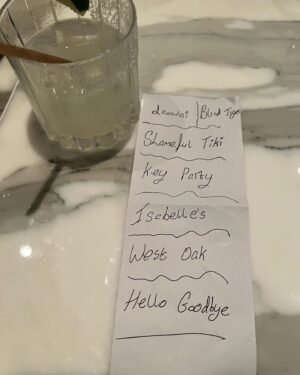 Laowai / Blnd Tygr
Shameful Tiki
Key Party
Isabelle's
West Oak
Hello Goodbye